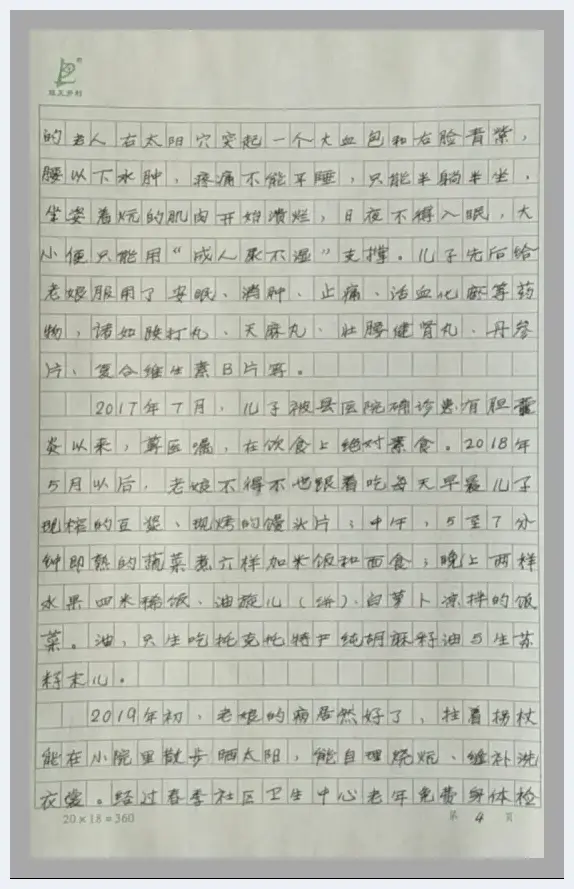 的老人右太阳穴突起一个大血包和右脸青紫，
腰以下水肿，疼痛不能平睡，只能半躺半坐，
坐姿着炕的肌肉开始溃烂，日夜不得入眠，大
小便只能用“成人尿不湿”支撑。儿子先后给
老娘服用了安眠、消肿、止痛、活血化瘀等药
物，诸如跌打丸、天麻丸、壮腰健肾丸、丹参
片、复合维生素B片等。
2017年7月，儿子被县医院确诊患有胆囊
炎以来，遵医嘱，在饮食上绝对素食。2018年
5月以后，老娘不得不也跟着吃每天早晨儿子
现榨的豆浆、现烤的馒头片；中午，5至7分
钟即熟的蔬菜煮六样加米饭和面食；晚上两样
水果四米稀饭、油旋儿（饼）、白萝卜凉拌的饭
菜。油，只生吃托克托特产纯胡麻籽油与生苏
籽末儿。
2019年初，老娘的病居然好了，拄着拐杖
能在小院里散步晒太阳，能自理烧炕、缝补洗
衣裳。经过春季社区卫生中心老年免费身体检
20×18=360
第 4 页